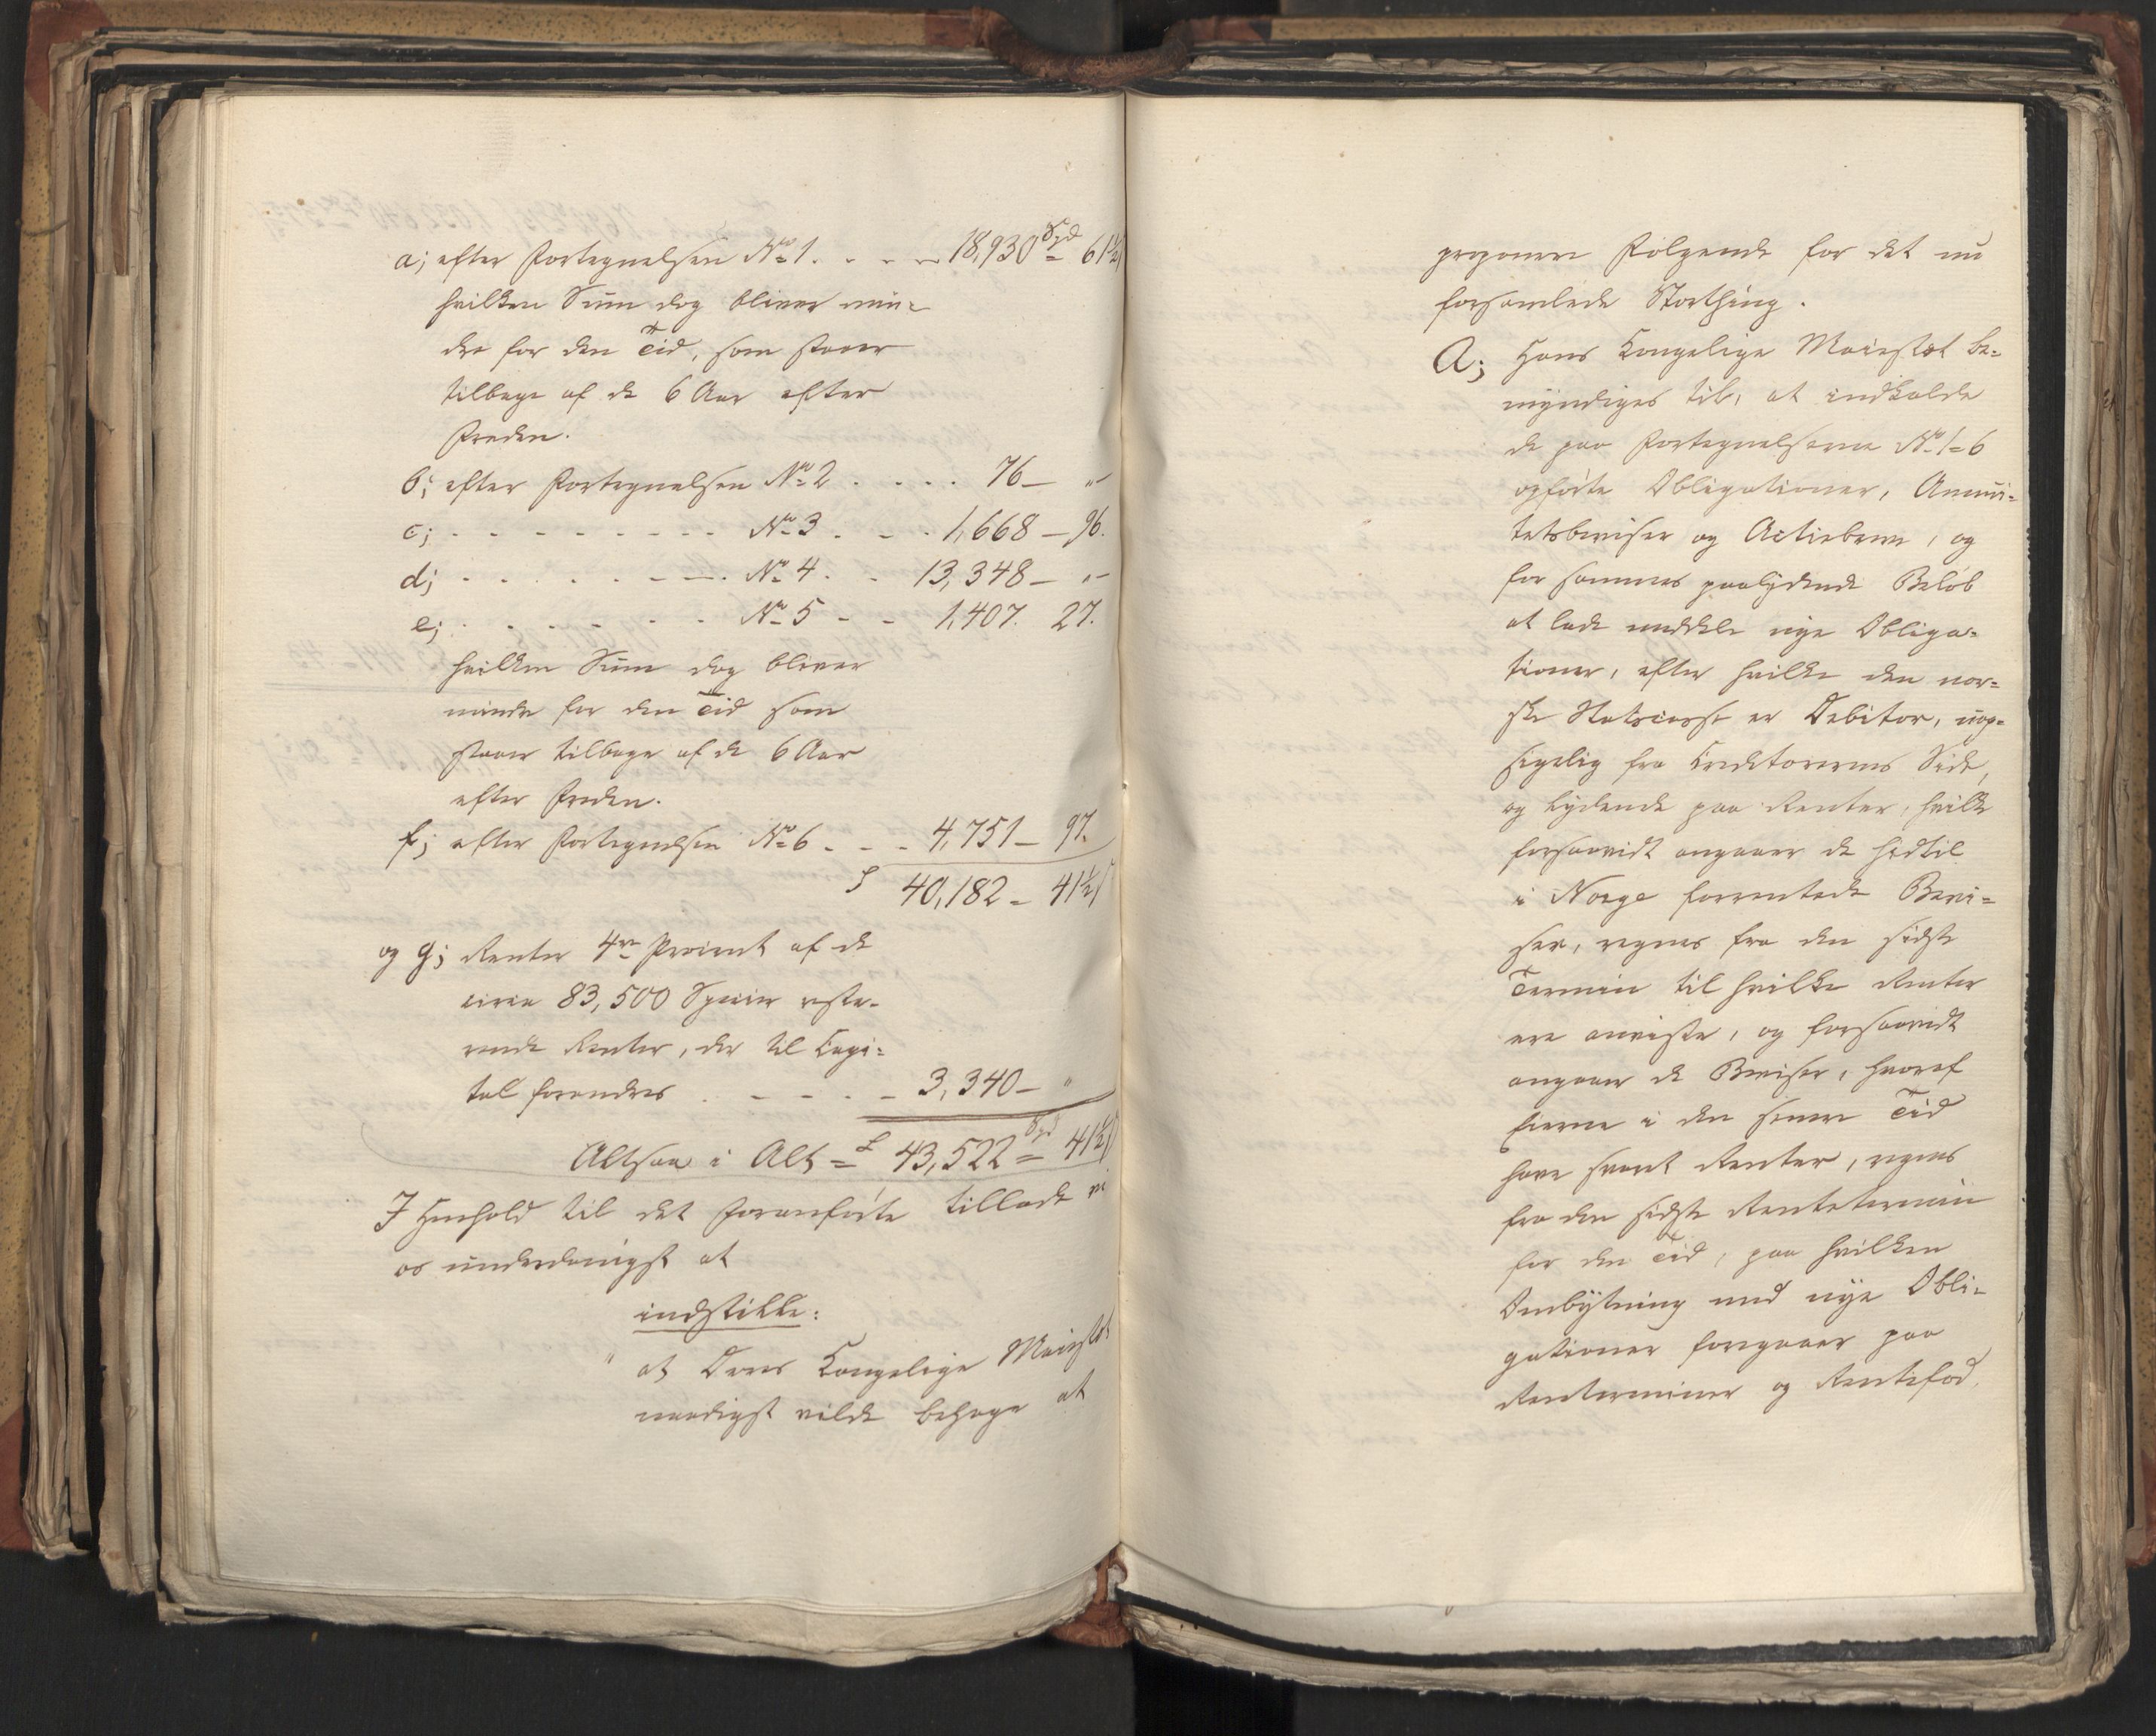 a; efter Fortegnelsen No 1. - - - 18,930 Spd = 61½
hvilken Sum dog bliver min-
dre for den Tid, som staaer
tilbage af de 6 Aar efter
Freden.
b; efter Fortegnelsen No 2 . . . . 76 - "
c; - - - - - - - - No 3 . - . 1,668 - 96.
d; - - - - - - - - No 4 . - 13,348 - "
e; - - - - - - - No 5 - - 1,407. 27.
hvilken Sum dog bliver
mindre for den Tid som
staaer tilbage af de 6 Aar
efter Freden.
f; efter Fortegnelsen No 6 - - - 4,751 - 97.
40,182 - 41½
og g; Renter 4re Procent af de
circa 83,500 Species reste-
rende Renter, der til Capi-
tal forandres . - - - - 3,340 - "
Altsaa i Alt = 43,522 Spd = 41½
I Henhold til det Foranførte tillade vi
os underdanigst at
indstille:
" at Deres Kongelige Majestæt
naadigst vilde behage at
proponere Følgende for det nu
forsamlede Storthing.
A; Hans Kongelige Majestæt be-
myndiges til, at indkalde
de paa Fortegnelserne No 1-6
opførte Obligationer, Annui-
tetsbeviser og Actiebreve, og
for sammes paalydende Beløb
at lade meddele nye Obliga-
tioner, efter hvilke den nor-
ske Statscasse er Debitor, uop-
sigelig fra Creditorernes Side,
og lydende paa Renter, hvilke
forsaavidt angaaer de hidtil
i Norge forrentede Bevi-
ser, regnes fra den sidste
Termin til hvilke Renter
ere anviste, og forsaavidt
angaaer de Beviser, hvoraf
Eierne i den senere Tid
have savnet Renter, regnes
fra den sidste Rentetermin
før den Tid, paa hvilken
Ombytning med nye Obli-
gationer foregaaer paa
Renteterminer og Rentefod.